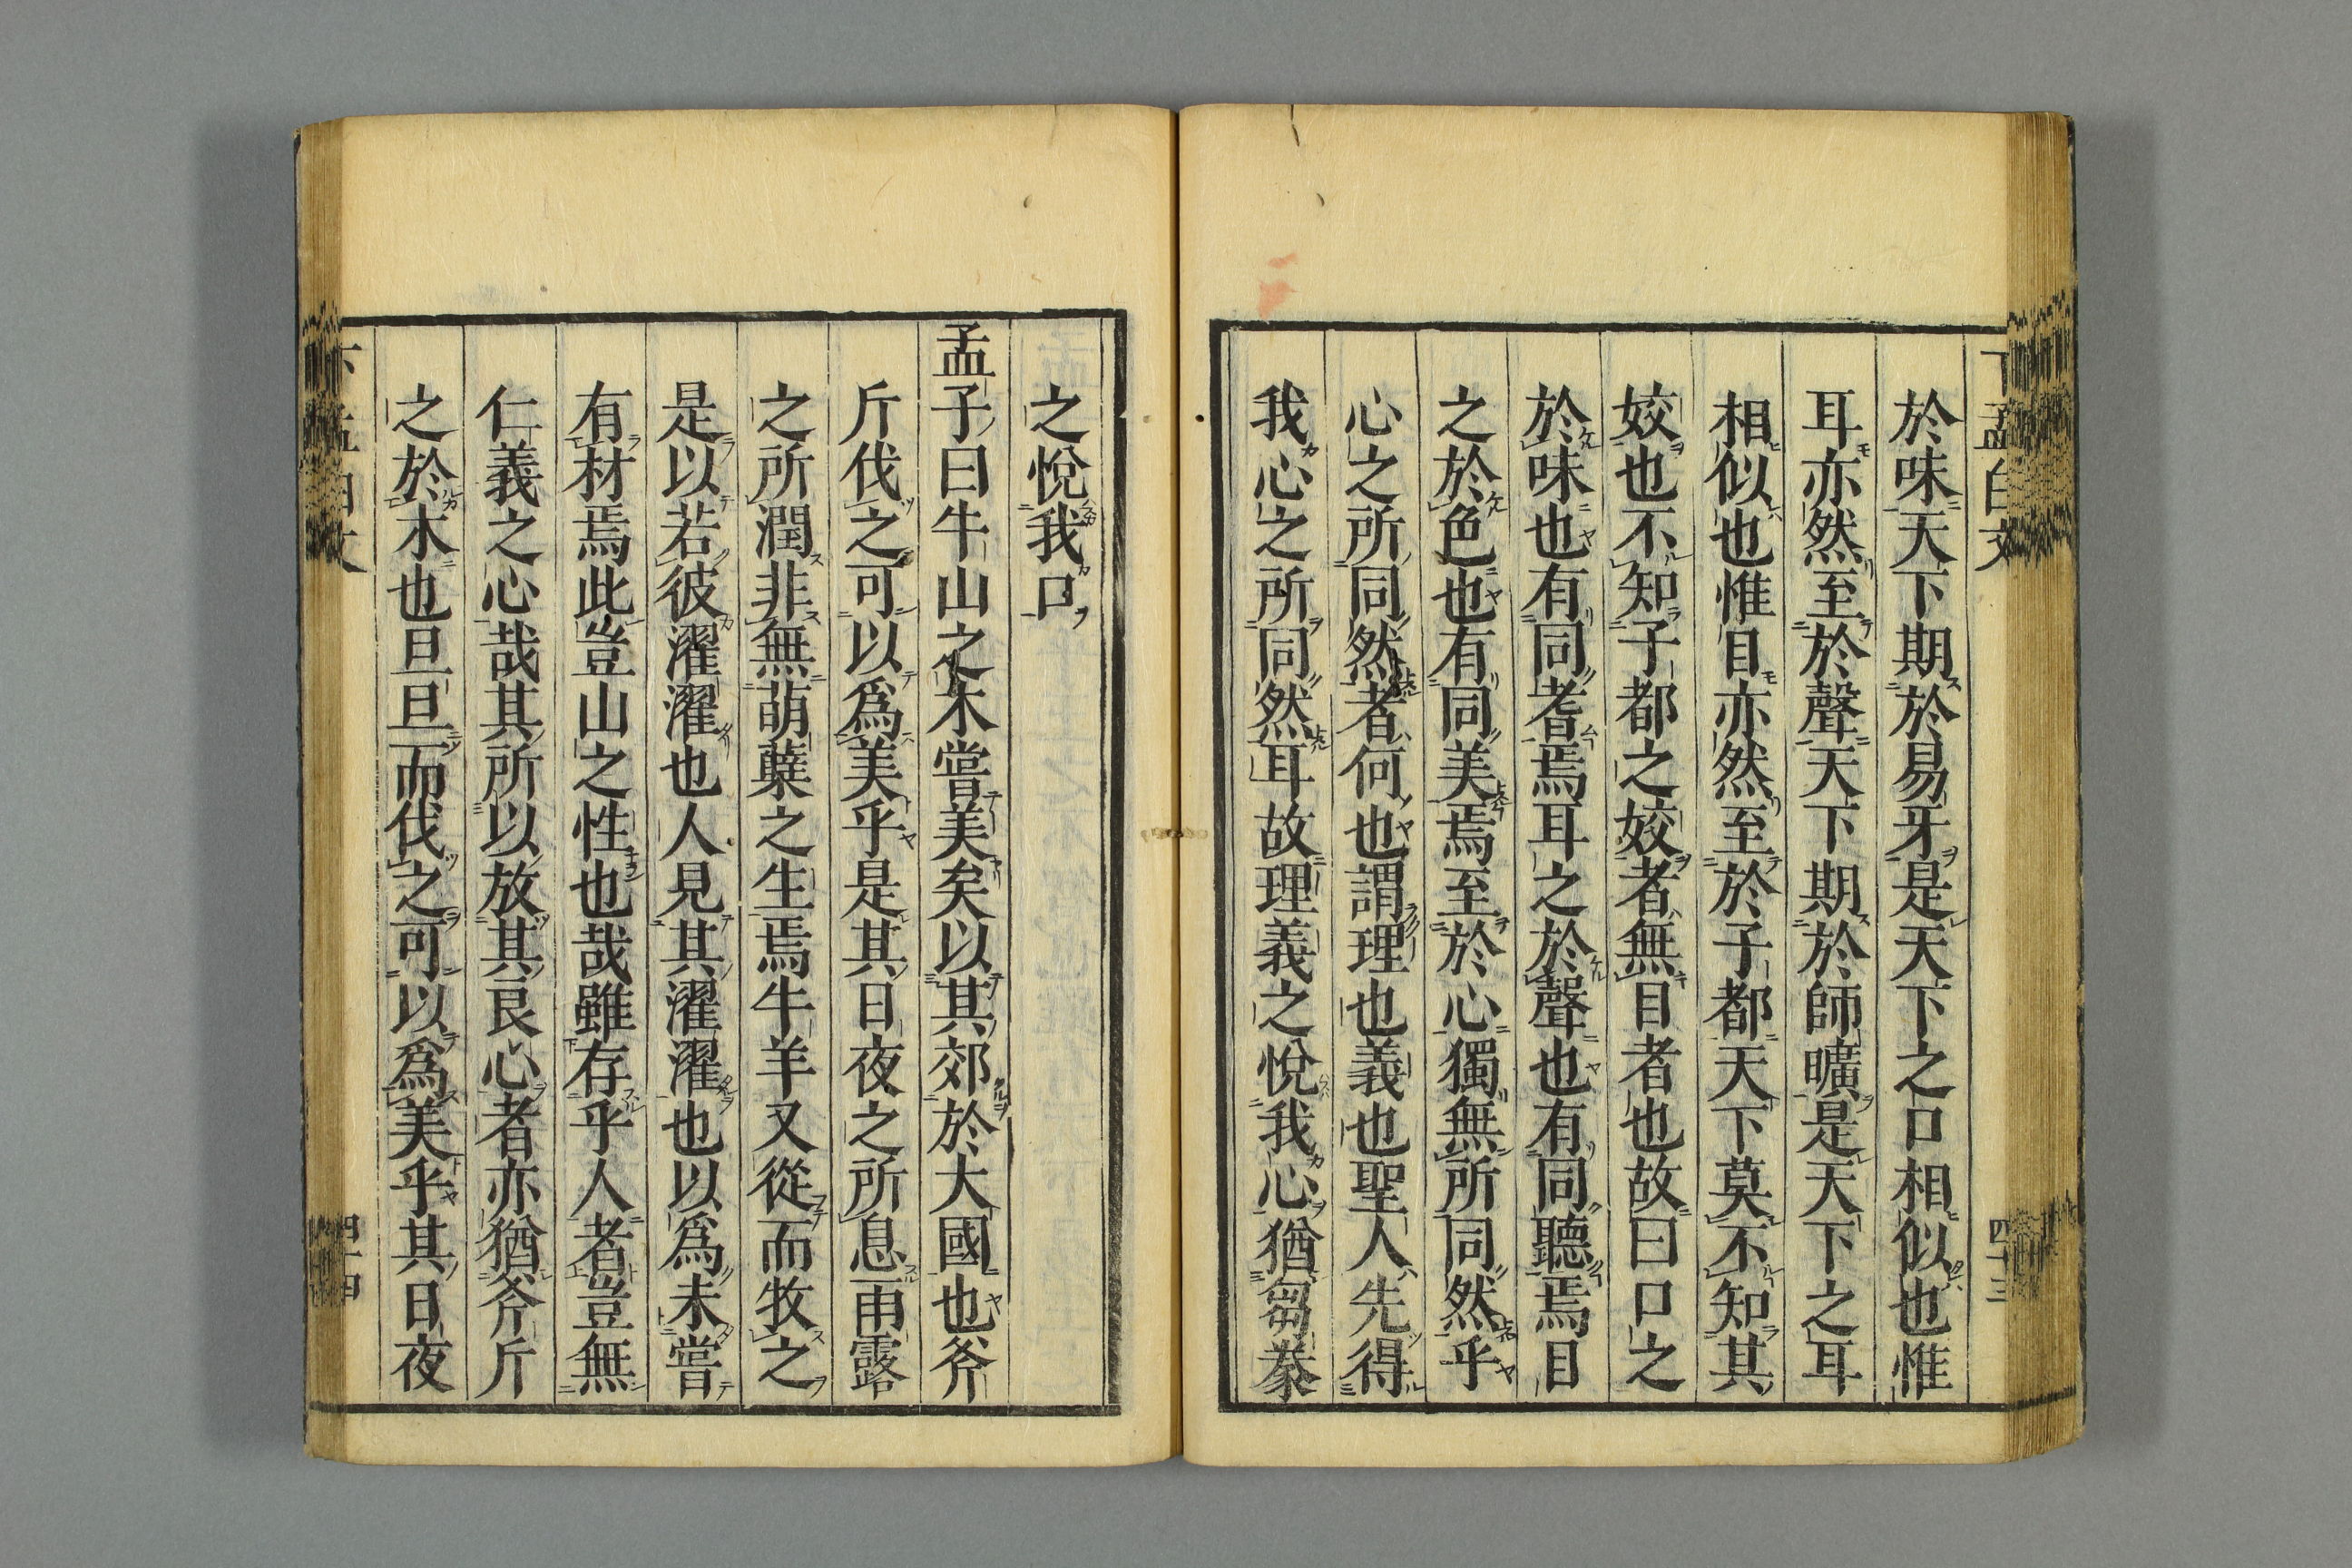 下孟白文
四十三
於味天下期於易牙是天下之口相似也惟
耳亦然至於聲天下期於師曠是天下之耳
相似也惟目亦然至於子都天下莫不知其
姣也不知子都之姣者無目者也故曰口之
於味也有同耆焉耳之於聲也有同聽焉目
之於色也有同美焉至於心獨無所同然乎
心之所同然者何也謂理也義也聖人先得
我心之所同然耳故理義之悅我心猶芻豢
之悅我口
孟子曰牛山之木嘗美矣以其郊於大國也斧
斤伐之可以爲美乎是其日夜之所息雨露
之所潤非無萌蘖之生焉牛羊又從而牧之
是以若彼濯濯也人見其濯濯也以爲未嘗
有材焉此豈山之性也哉雖存乎人者豈無
仁義之心哉其所以放其良心者亦猶斧斤
之於木也旦旦而伐之可以爲美乎其日夜
下孟白文
四十四